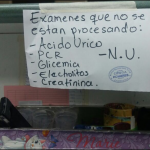 Examenes que no se
estan procesando:
- Acido Urico
- PCR - N.U.
- Glicemia
- Electrolitos
- Creatinina.